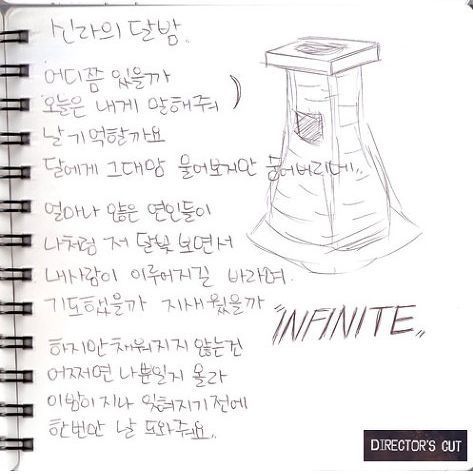 신라의 달밤..
어디쯤 있을까
오늘은 내게 말해줘
날 기억할까요
달에게 그대맘 물어보지만
얼마나 많은 연인들이
나처럼 저 달빛 보면서
내사랑이 이루어지길 바라며.
기도했을까 지새웠을까
"INFINITE„
하지만 채워지지 않는건
어쩌면 나뿐일지 몰라
이밤이 지나 잊혀지기전에
한번만 날 도와주요..
DIRECTOR'S CUT